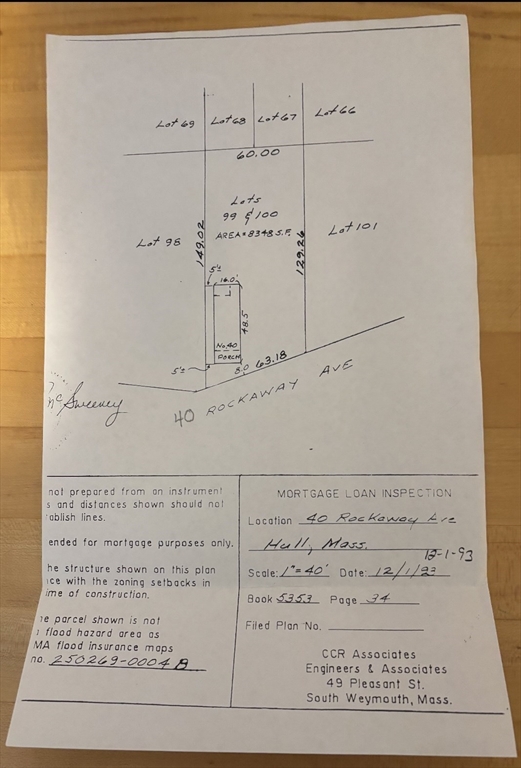 Lot 69 Lot 68 Lot 67 Lot 66
60.00
Lots
99 & 100
AREA = 8348 S.F.
Lot 98
Lot 101
149.02
129.26
5'±
16.0'
48.5
No. 40
PORCH
5'±
8.0
63.18
40 ROCKAWAY AVE
McSweeney
not prepared from an instrument
s and distances shown should not
tablish lines.
ended for mortgage purposes only.
he structure shown on this plan
nce with the zoning setbacks in
ime of construction.
he parcel shown is not
a flood hazard area as
MA flood insurance maps
no. 250269-0004 B
MORTGAGE LOAN INSPECTION
Location 40 Rockaway Ave
Hull, Mass.
12-1-93
Scale: 1"=40' Date: 12/1/93
Book 5353 Page 34
Filed Plan No.
CCR Associates
Engineers & Associates
49 Pleasant St.
South Weymouth, Mass.